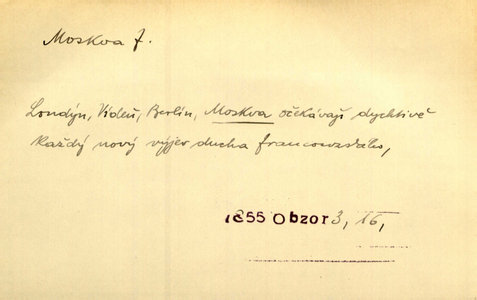 Moskva f.
Londýn, Vídeň, Berlín, Moskva očekávají dychtivě
každý nový výjev ducha francouzského,
1855 Obzor 3, 16,